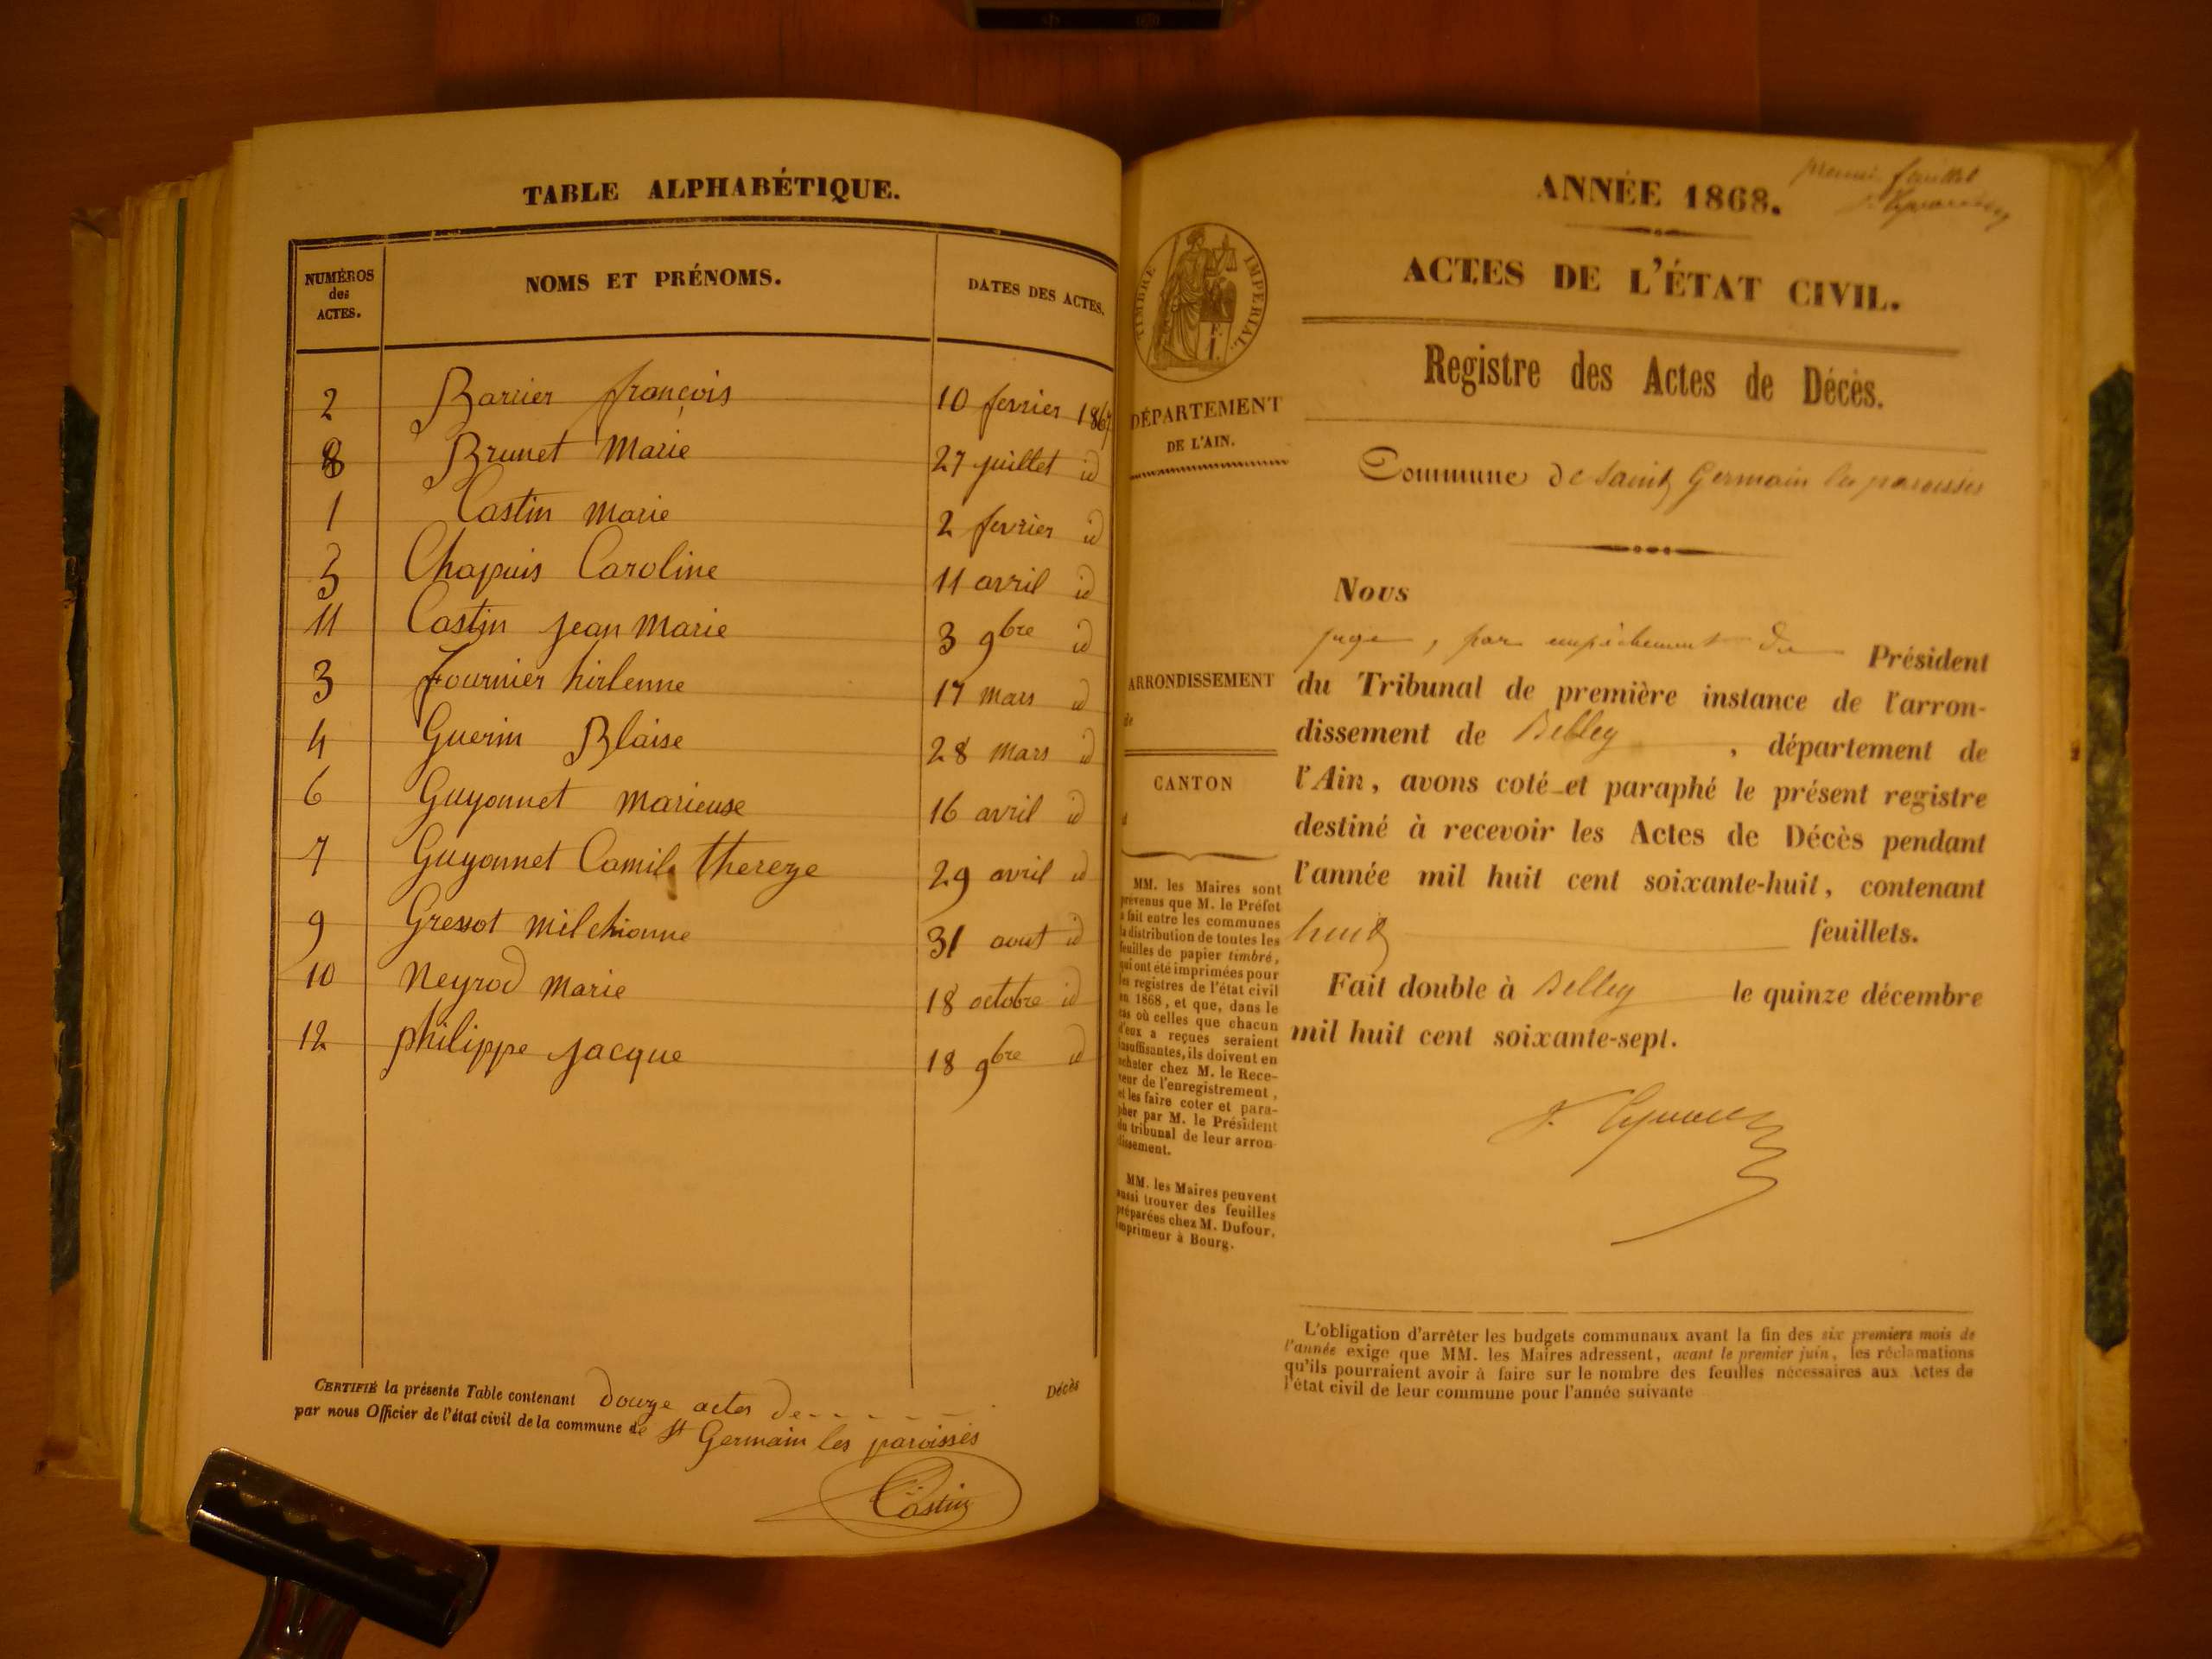 TABLE ALPHABÉTIQUE.
NUMÉROS des ACTES.
NOMS ET PRÉNOMS.
DATES DES ACTES.
2 Barrier françois 10 fevrier 1867
8 Brunet Marie 27 juillet id
1 Castin Marie 2 fevrier id
5 Chapuis Caroline 11 avril id
11 Castin Jean Marie 3 9bre id
3 Fournier 17 mars id
4 Guerin Blaise 28 mars id
6 Guyonnet marieuse 16 avril id
7 Guyonnet Camile thereze 29 avril id
9 Gressot 31 aout id
10 Neyrod Marie 18 octobre id
12 philippe Jacque 18 9bre id
CERTIFIÉ la présente Table contenant douze actes de Décès
par nous Officier de l'état civil de la commune de St Germain les paroisses
Castin
premier feuillet
ANNÉE 1868.
ACTES DE L'ÉTAT CIVIL.
TIMBRE IMPERIAL.
Registre des Actes de Décès.
DÉPARTEMENT
DE L'AIN.
Commune de saint Germain les paroisses
ARRONDISSEMENT
de
CANTON
d
MM. les Maires sont
prévenus que M. le Préfet
a fait entre les communes
la distribution de toutes les
feuilles de papier timbré,
qui ont été imprimées pour
les registres de l'état civil
en 1868, et que, dans le
cas où celles que chacun
d'eux a reçues seraient
insuffisantes, ils doivent en
acheter chez M. le Rece-
veur de l'enregistrement,
et les faire coter et para-
pher par M. le Président
du tribunal de leur arron-
dissement.
MM. les Maires peuvent
aussi trouver des feuilles
préparées chez M. Dufour,
imprimeur à Bourg.
Nous
juge, par empêchement du Président
du Tribunal de première instance de l'arron-
dissement de Belley, département de
l'Ain, avons coté et paraphé le présent registre
destiné à recevoir les Actes de Décès pendant
l'année mil huit cent soixante-huit, contenant
huit feuillets.
Fait double à Belley le quinze décembre
mil huit cent soixante-sept.
L'obligation d'arrêter les budgets communaux avant la fin des six premiers mois de
l'année exige que MM. les Maires adressent, avant le premier juin, les réclamations
qu'ils pourraient avoir à faire sur le nombre des feuilles nécessaires aux Actes de
l'état civil de leur commune pour l'année suivante